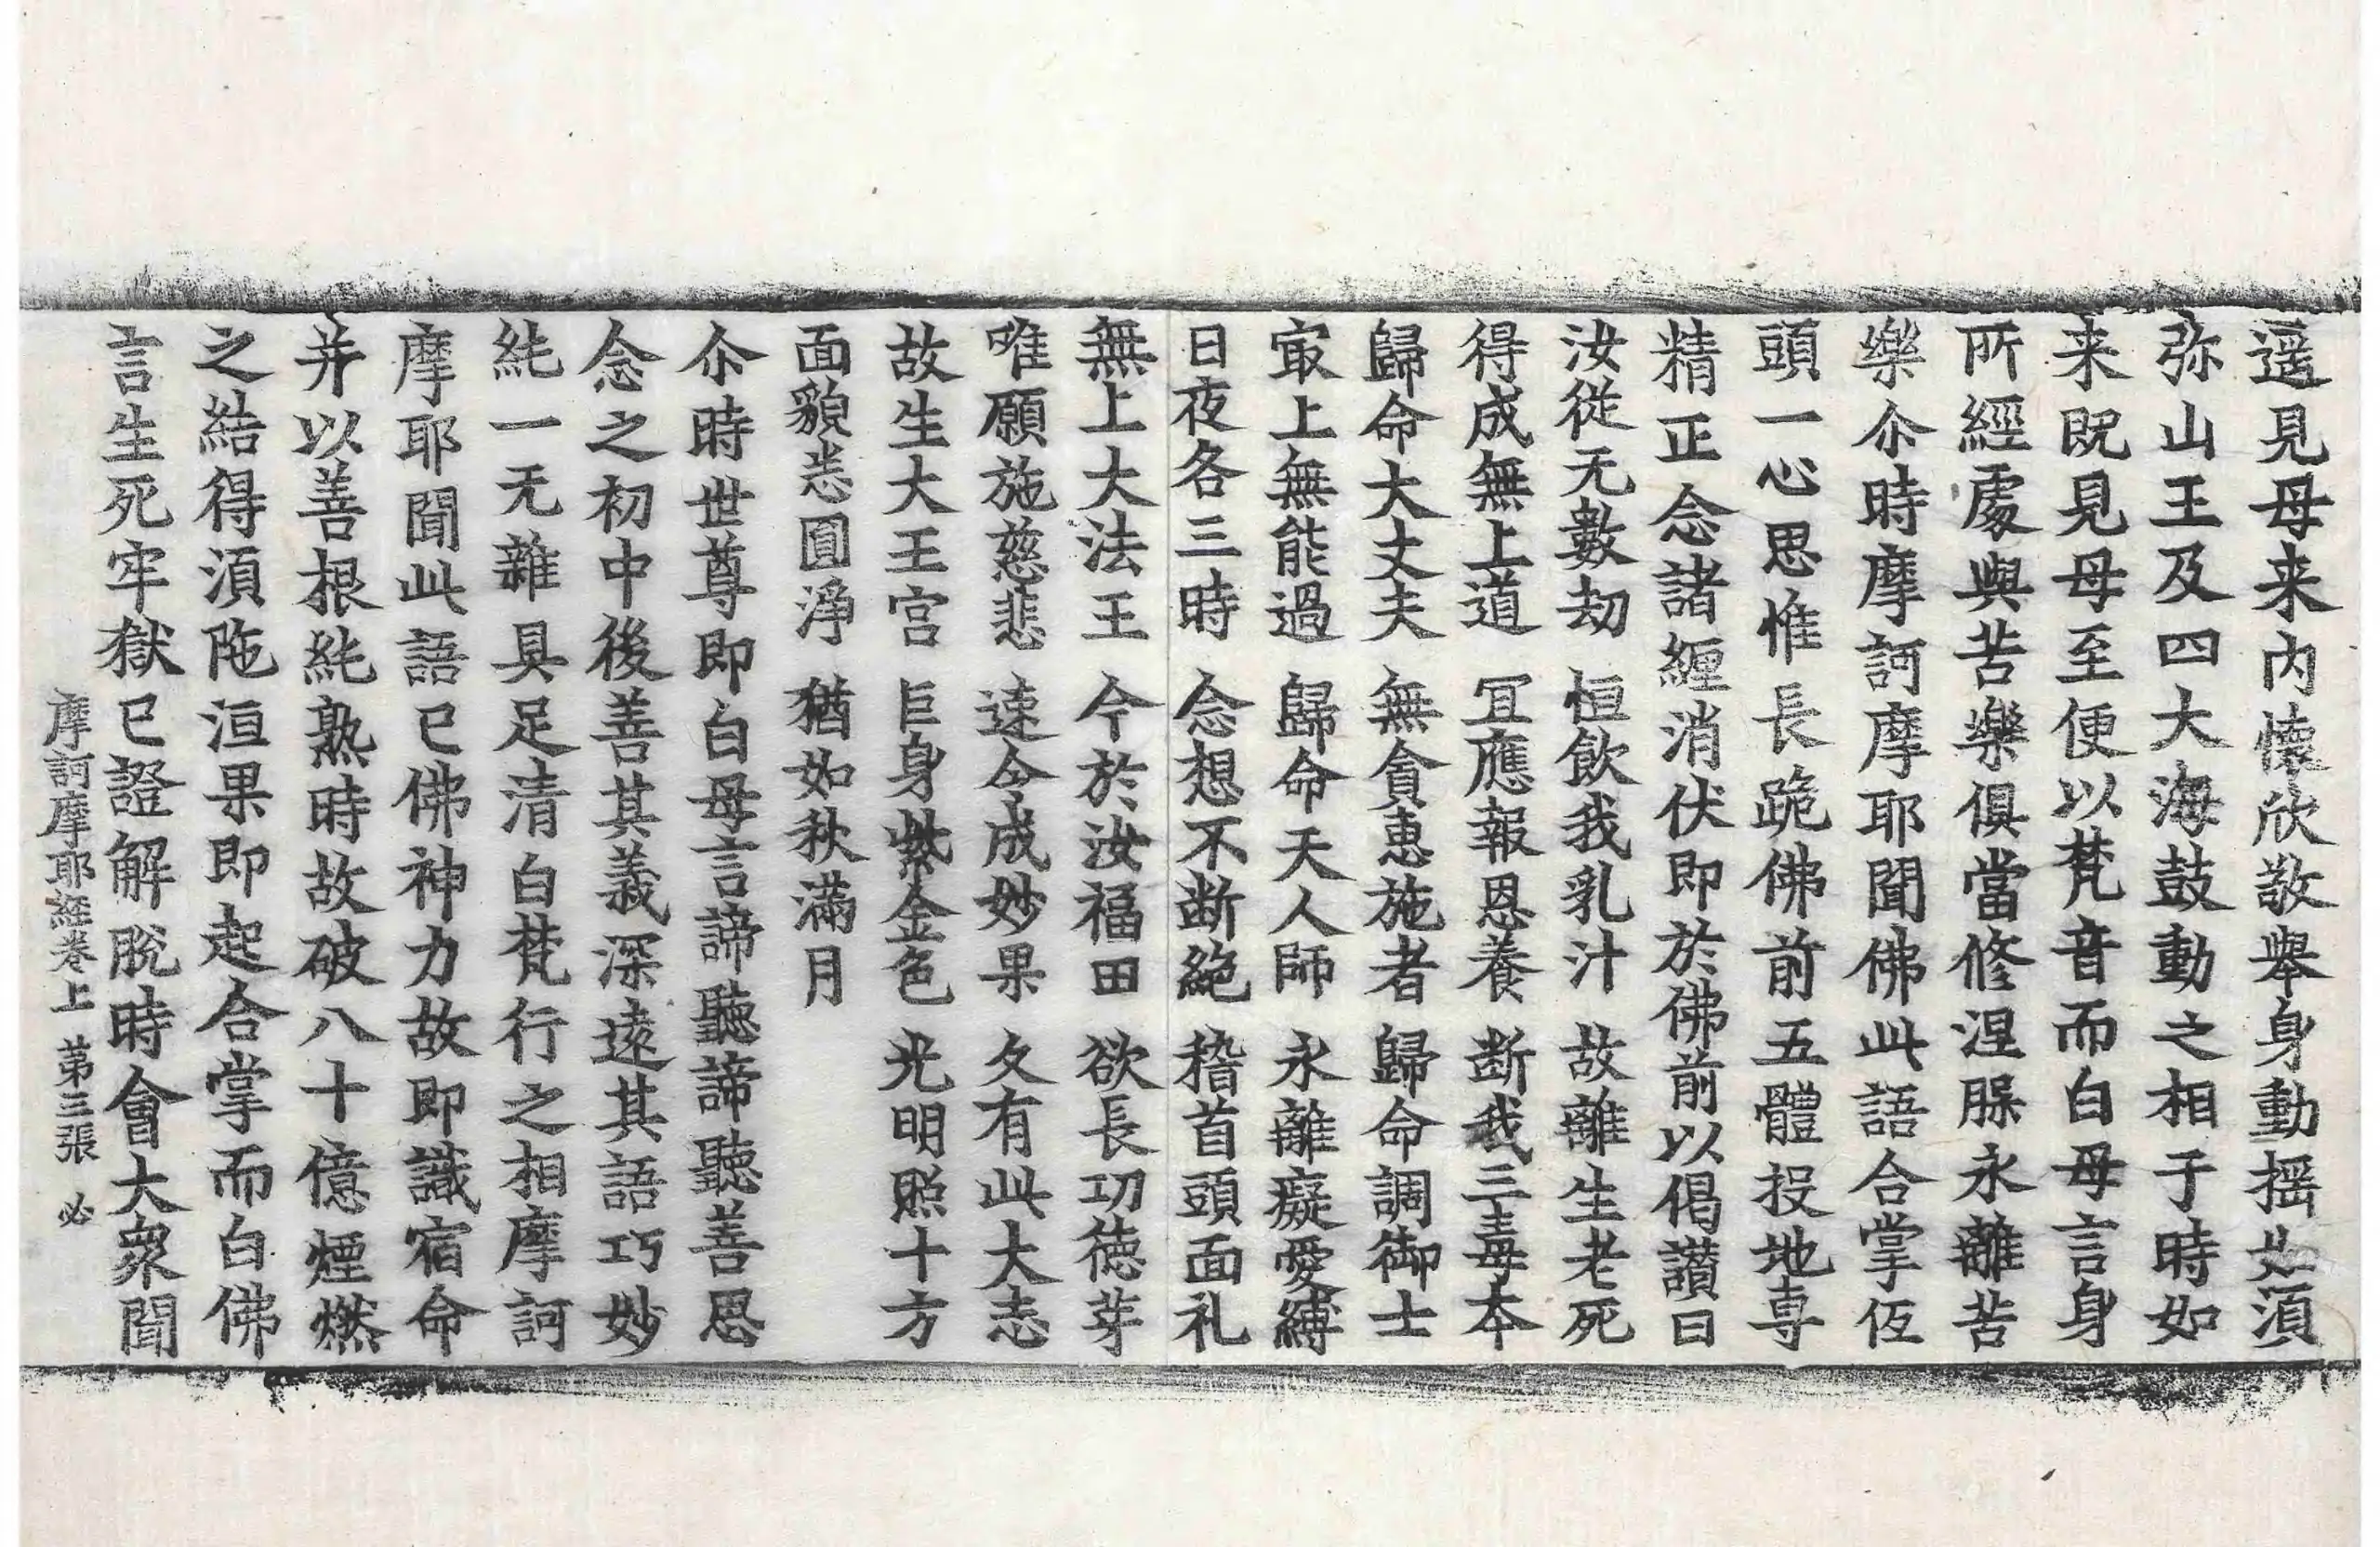 遥見母来内懷欣敬舉身動搖如須
弥山王及四大海鼓動之相于時如
来既見母至便以梵音而白母言身
所經處與苦樂俱當修涅槃永離苦
樂尒時摩訶摩耶聞佛此語合掌伍
頭一心思惟長跪佛前五體投地専
精正念諸纏消伏即於佛前以偈讃曰
汝從无數劫　恒飲我乳汁　故離生老死
得成無上道　冝應報恩養　断我三毒本
歸命大丈夫　無貪惠施者　歸命調御士
㝡上無能過　歸命天人師　永離癡愛縛
日夜各三時　念想不断絶　稽首頭面礼
無上大法王　今於汝福田　欲長功徳芽
唯願施慈悲　速令成妙果　久有此大志
故生大王宮　巨身紫金色　光明照十方
面貌恙圓淨　猶如秋滿月
尒時世尊即白母言諦聽諦聽善思
念之初中後善其義深遠其語巧妙
純一无雜具足清白梵行之相摩訶
摩耶聞此語已佛神力故即識宿命
并以善根純熟時故破八十億煙燃
之結得湏陁洹果即起合掌而白佛
言生死牢獄已證解脫時會大衆聞
摩訶摩耶經卷上　第三張　必